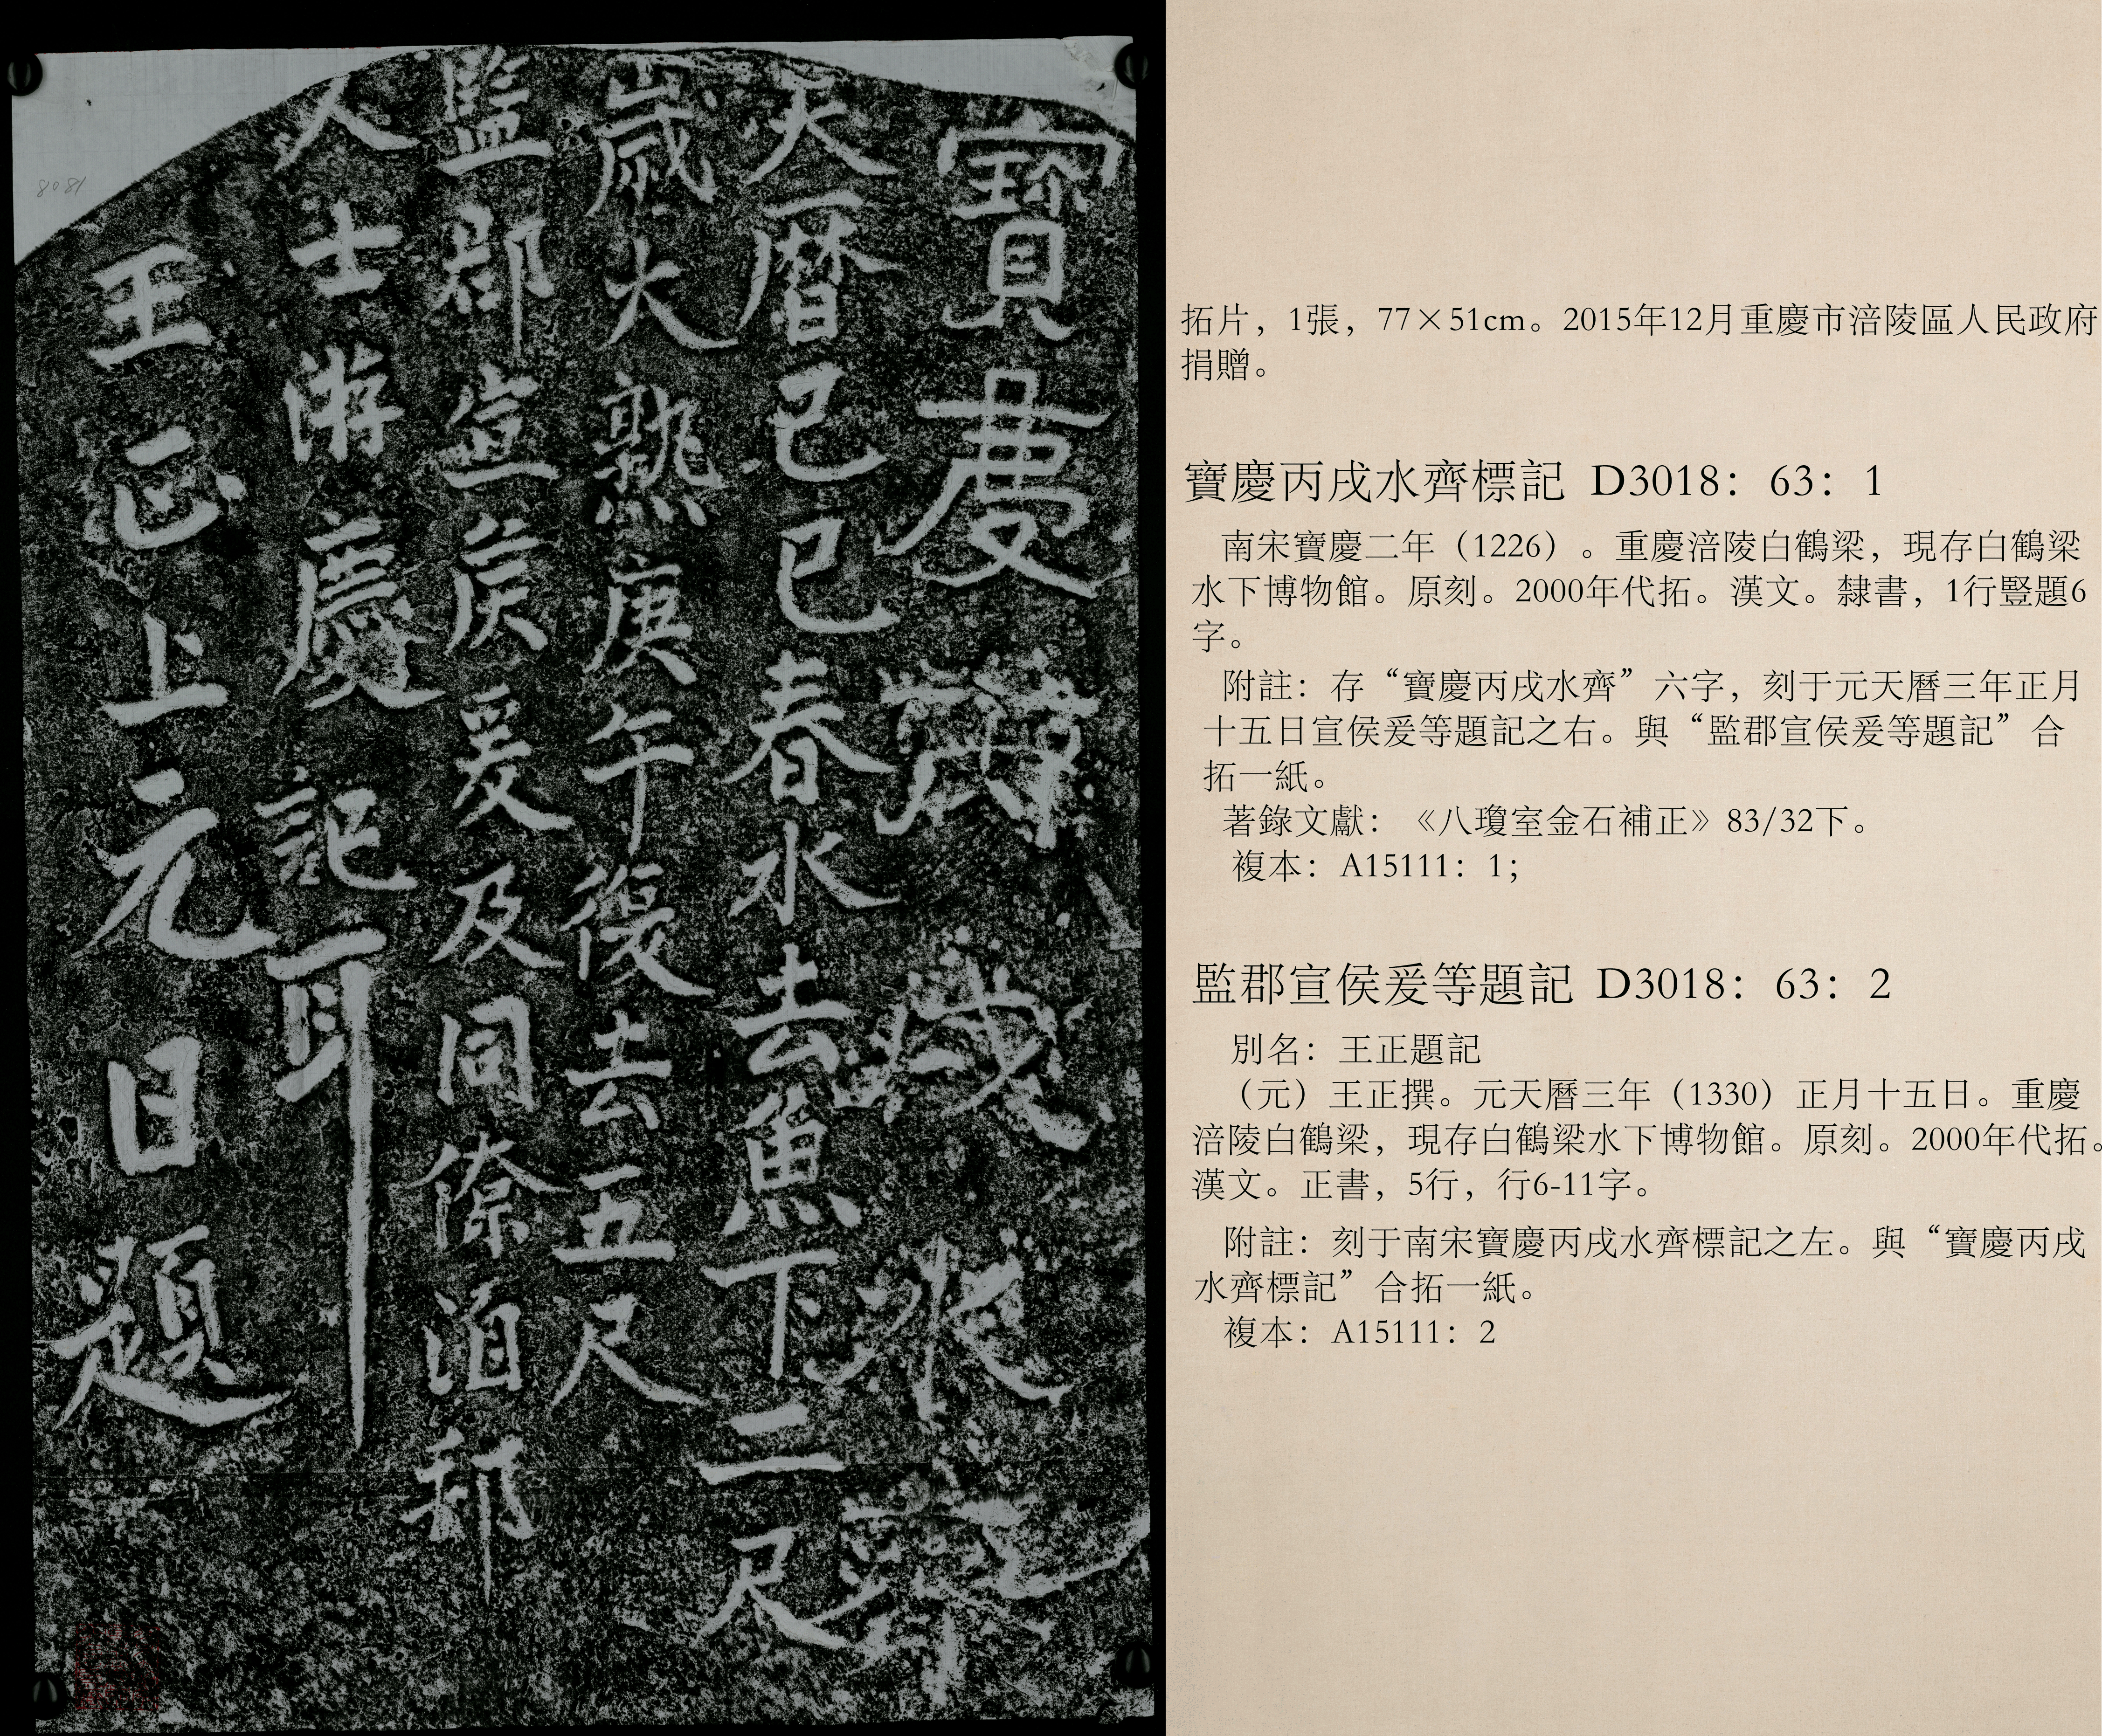 寶慶丙戌水齊
天暦己巳春水去魚下二尺
歲大熟庚午復去五尺
監郡宣侯爰及同僚洎郡
人士游慶記耳
王正上元日題
8081
拓片，1張，77×51cm。2015年12月重慶市涪陵區人民政府
捐贈。
寶慶丙戌水齊標記 D3018：63：1
南宋寶慶二年（1226）。重慶涪陵白鶴梁，現存白鶴梁
水下博物館。原刻。2000年代拓。漢文。隸書，1行豎題6
字。
附註：存“寶慶丙戌水齊”六字，刻于元天曆三年正月
十五日宣侯爰等題記之右。與“監郡宣侯爰等題記”合
拓一紙。
著錄文獻：《八瓊室金石補正》83/32下。
複本：A15111：1；
監郡宣侯爰等題記 D3018：63：2
別名：王正題記
（元）王正撰。元天曆三年（1330）正月十五日。重慶
涪陵白鶴梁，現存白鶴梁水下博物館。原刻。2000年代拓。
漢文。正書，5行，行6-11字。
附註：刻于南宋寶慶丙戌水齊標記之左。與“寶慶丙戌
水齊標記”合拓一紙。
複本：A15111：2